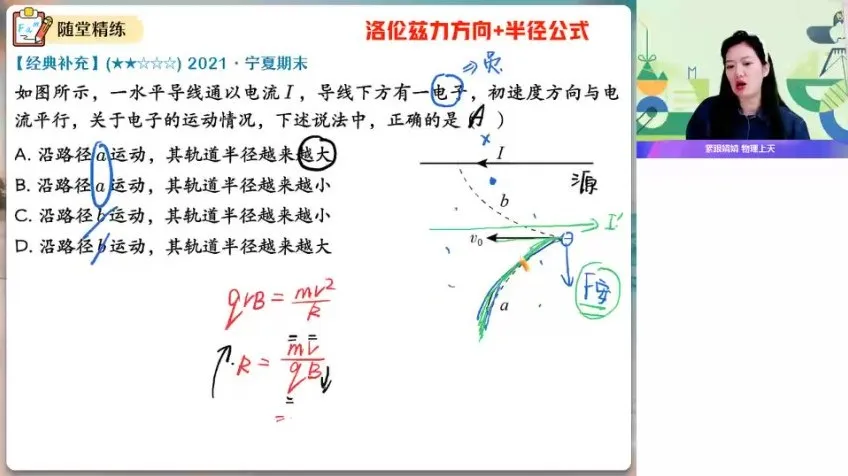 随堂精练
洛伦兹力方向+半径公式
【经典补充】(★★☆☆☆) 2021·宁夏期末
⇒ 负
如图所示，一水平导线通以电流 I，导线下方有一电子，初速度方向与电
流平行，关于电子的运动情况，下述说法中，正确的是（A）
A. 沿路径 a 运动，其轨道半径越来越大
B. 沿路径 a 运动，其轨道半径越来越小
C. 沿路径 b 运动，其轨道半径越来越小
D. 沿路径 b 运动，其轨道半径越来越大
×
I
源
b
I'
v₀
F安
a
qvB = mv²/R
R = mv/qB
紧跟婧婧 物理上天